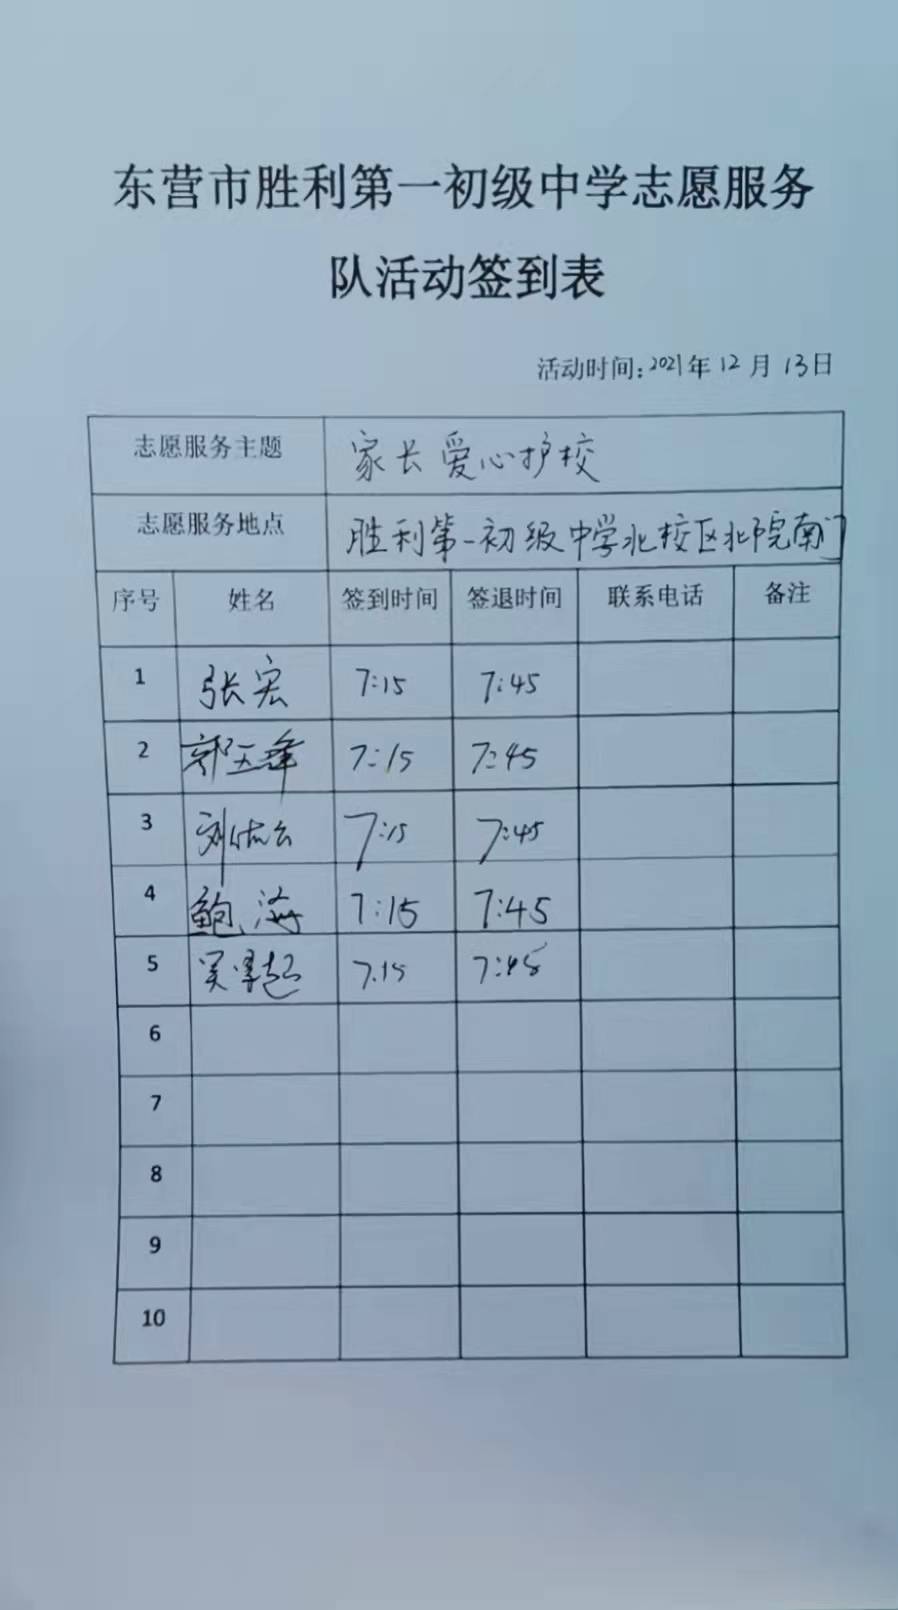 东营市胜利第一初级中学志愿服务
队活动签到表
活动时间:2021年12月13日
志愿服务主题 家长爱心护校
志愿服务地点 胜利第一初级中学北校区北院南门
序号 姓名 签到时间 签退时间 联系电话 备注
1 张宏 7:15 7:45
2 郭玉峰 7:15 7:45
3 刘 7:15 7:45
4 鲍海 7:15 7:45
5 吴 超 7.15 7:45
6
7
8
9
10